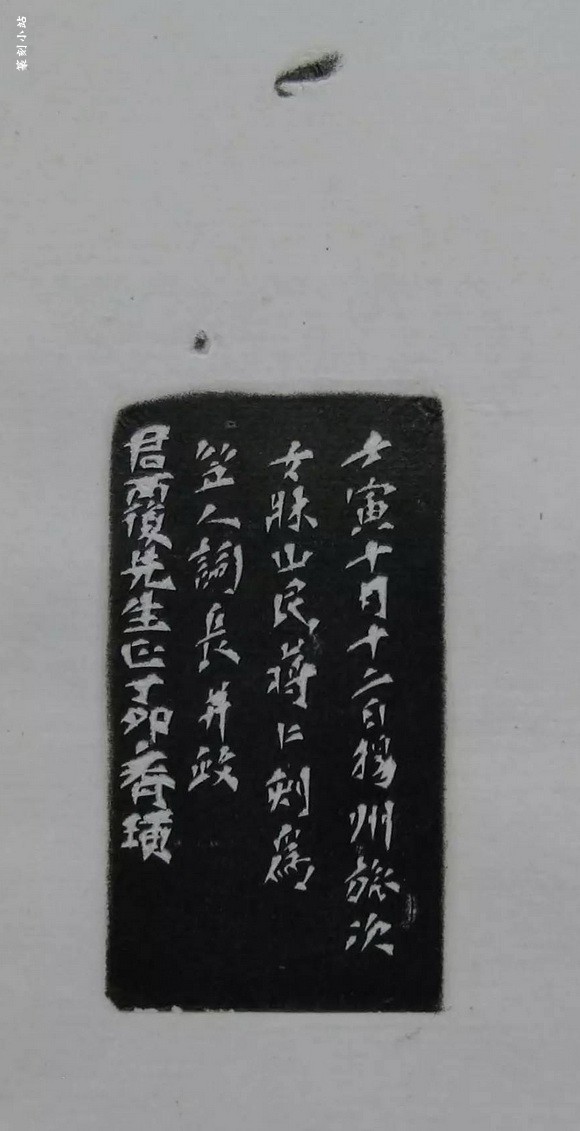 篆刻小站
壬寅十月十二日揚州旅次
女牀山民蔣仁刻為
笠人詞長并政
君覆先生正丁卯齊璜